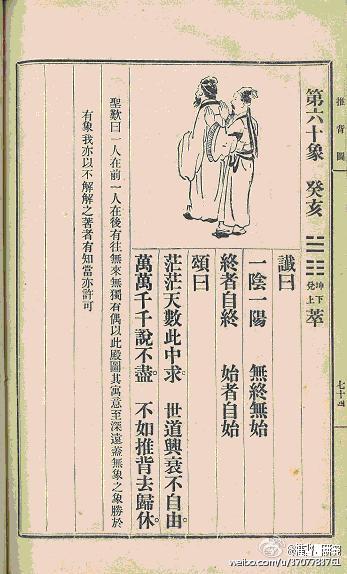 推背圖
七十四
第六十象 癸亥 ䷬ 坤下兌上 萃
讖曰
一陰一陽 無終無始
終者自終 始者自始
頌曰
茫茫天數此中求。世道興衰不自由。
萬萬千千說不盡。不如推背去歸休。
聖歎曰一人在前一人在後有往無來無獨有偶以此殿圖其寓意至深遠蓋無象之象勝於
有象我亦以不解解之著者有知當亦許可
weibo.com/u/3707783761